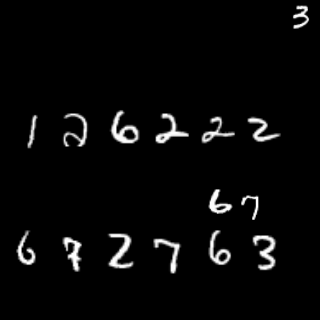 3
126222
67
672763